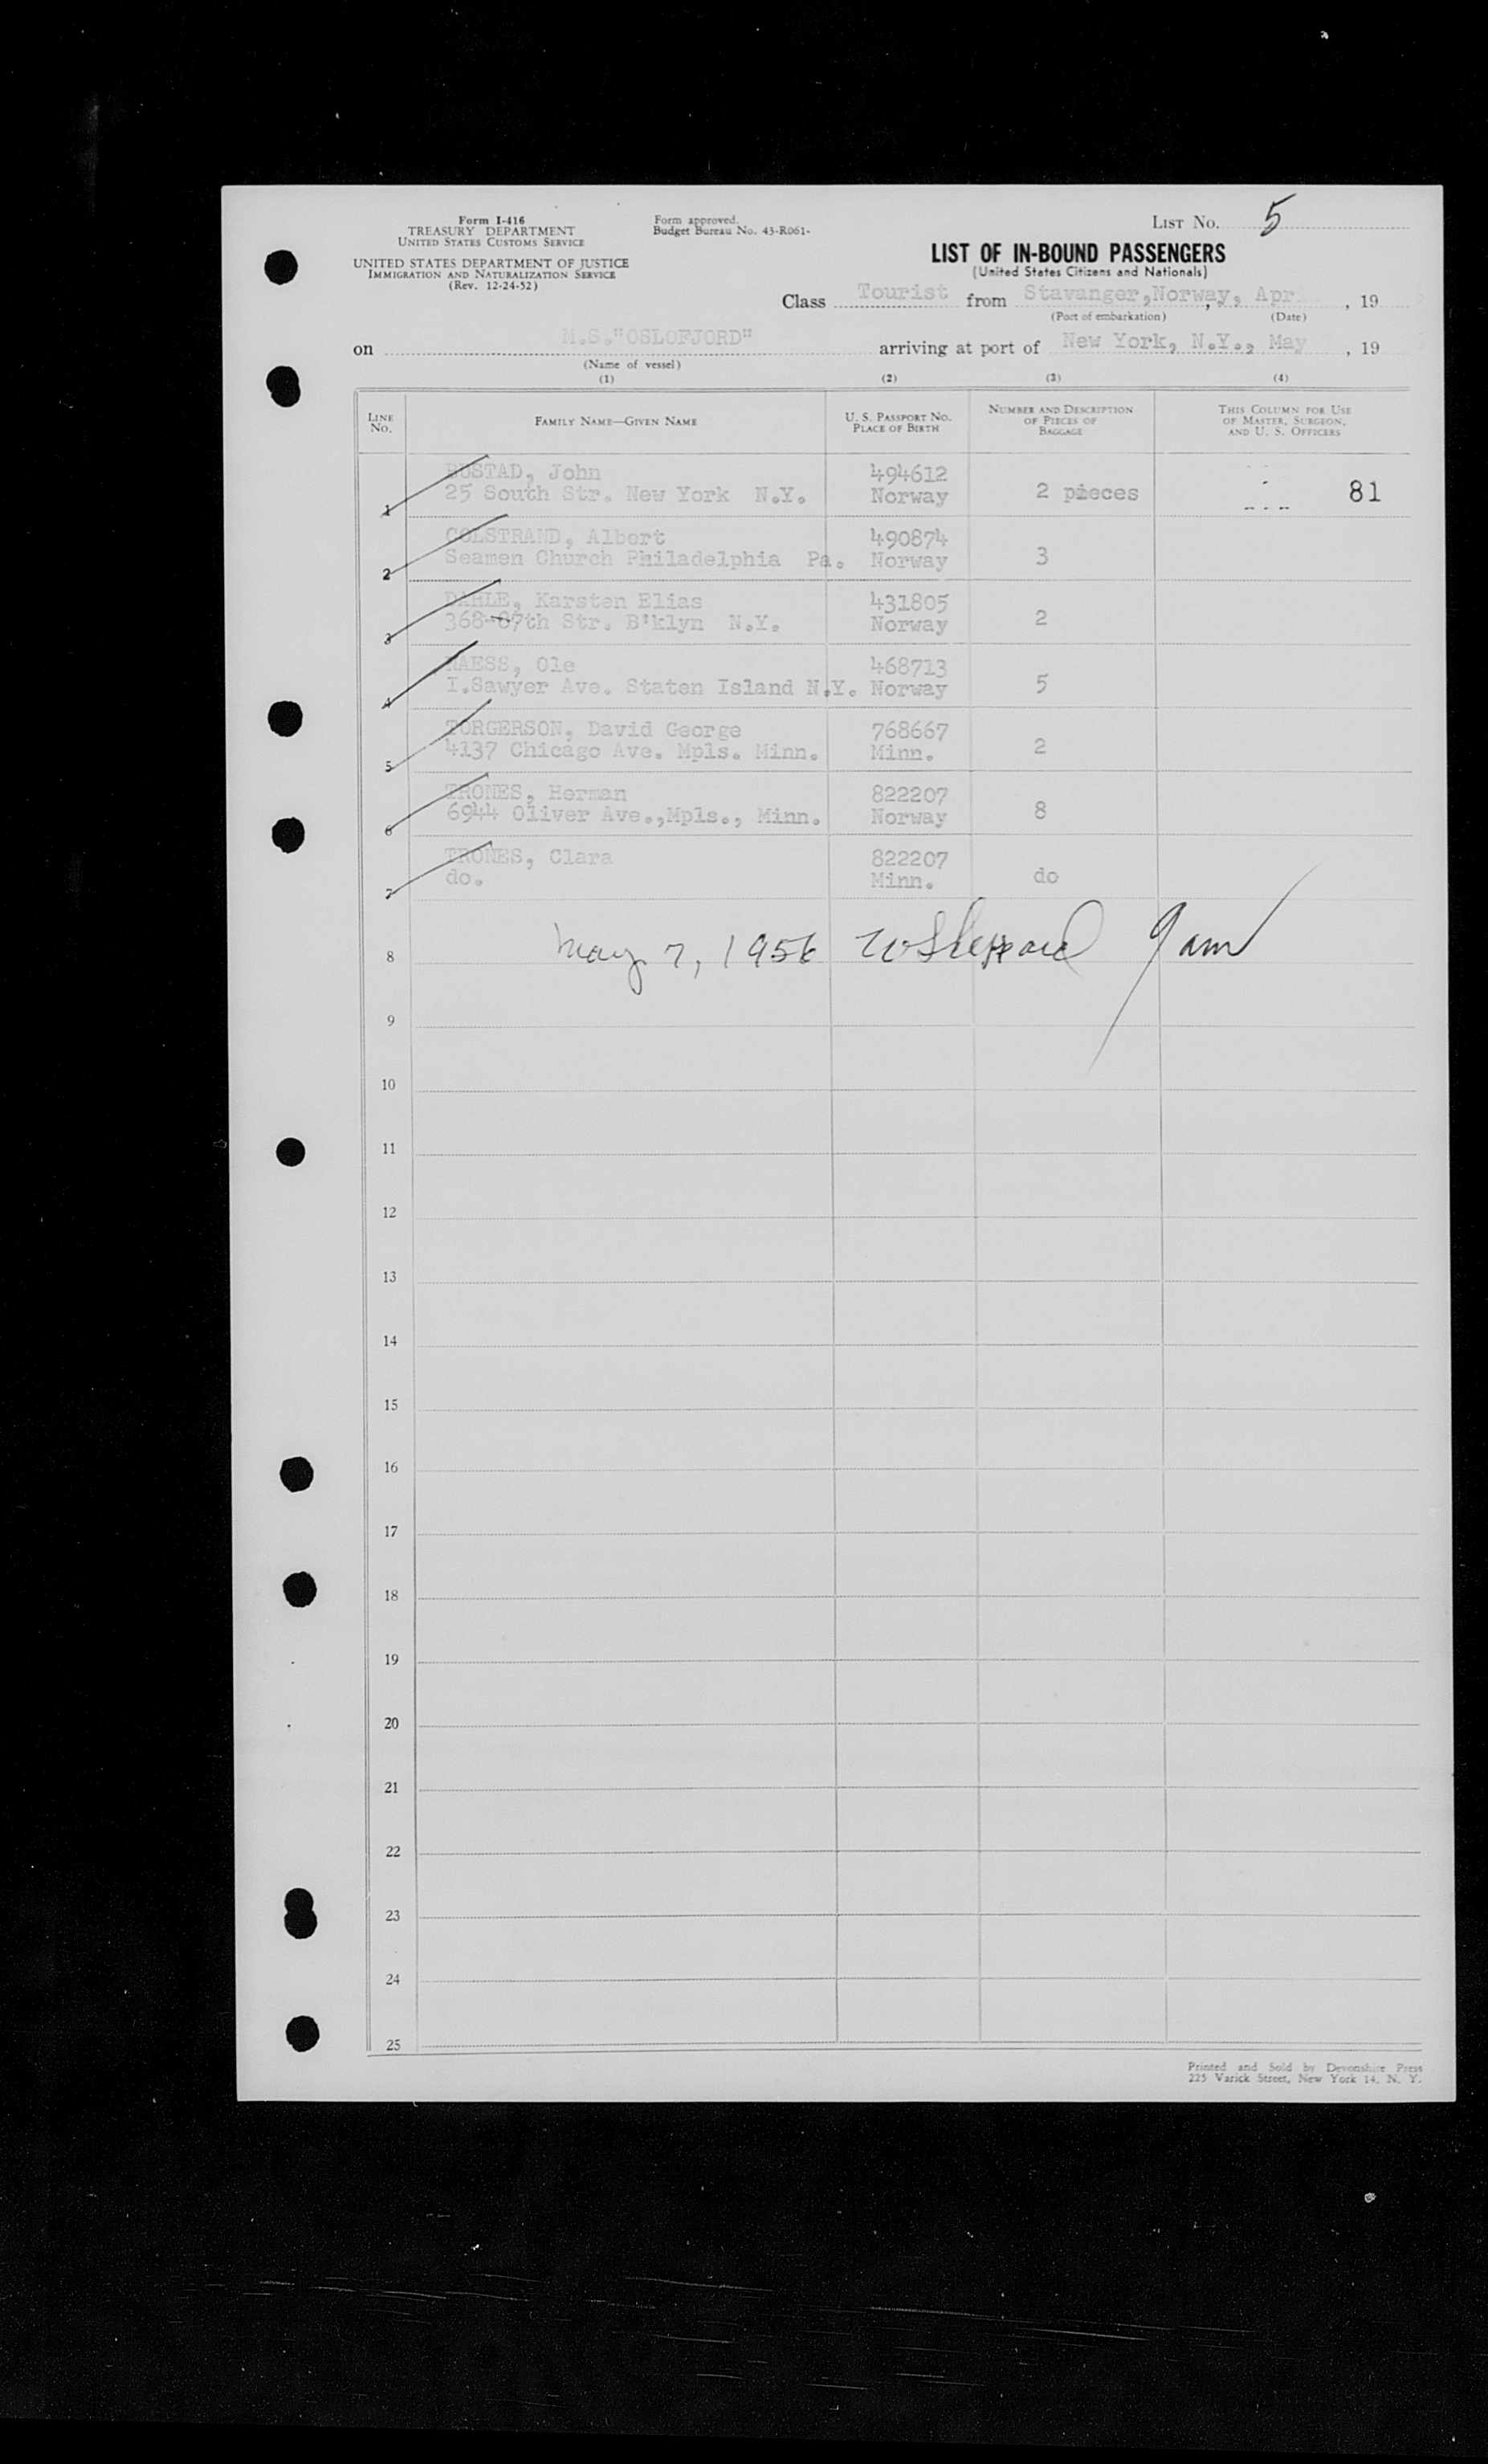 Form I-416
TREASURY DEPARTMENT
UNITED STATES CUSTOMS SERVICE
UNITED STATES DEPARTMENT OF JUSTICE
IMMIGRATION AND NATURALIZATION SERVICE
(Rev. 12-24-52)
Form approved.
Budget Bureau No. 43-R061-
LIST NO. 5
LIST OF IN-BOUND PASSENGERS
(United States Citizens and Nationals)
Class Tourist from Stavanger, Norway, Apr , 19
(Port of embarkation) (Date)
on M.S."OSLOFJORD" arriving at port of New York, N.Y., May , 19
(Name of vessel)
(1) (2) (3) (4)
LINE NO. FAMILY NAME—GIVEN NAME U. S. PASSPORT NO. PLACE OF BIRTH NUMBER AND DESCRIPTION OF PIECES OF BAGGAGE THIS COLUMN FOR USE OF MASTER, SURGEON, AND U. S. OFFICERS
BUSTAD, John 494612
1 25 South Str. New York N.Y. Norway 2 pieces 81
COLSTRAND, Albert 490874
2 Seamen Church Philadelphia Pa. Norway 3
DAHLE, Karsten Elias 431805
3 368-67th Str. B'klyn N.Y. Norway 2
Ole 468713
4 I.Sawyer Ave. Staten Island N.Y. Norway 5
TORGERSON, David George 768667
5 4137 Chicago Ave. Mpls. Minn. Minn. 2
TRONES, Herman 822207
6 6944 Oliver Ave.,Mpls., Minn. Norway 8
TRONES, Clara 822207
7 do. Minn. do
8 May 7, 1956 W Sheppard 9 am
9
10
11
12
13
14
15
16
17
18
19
20
21
22
23
24
25
Printed and Sold by Devonshire Press
225 Varick Street, New York 14, N. Y.